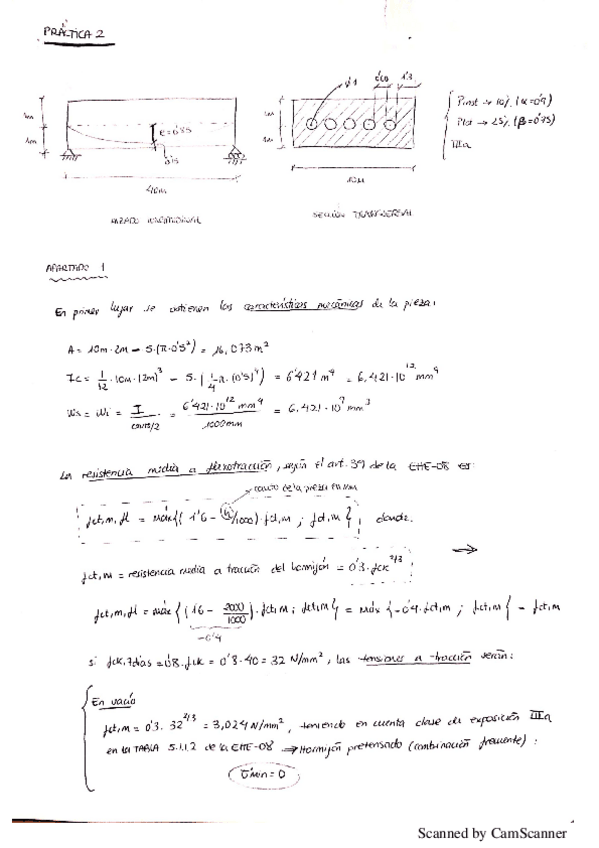 PRÁCTICA 2
Ø1
0'60
1'3
1m
1m
e=0'85
0'15
40m
1m
1m
10m
Pinst → 10% (α=0'9)
Ptot → 25% (β=0'75)
IIIa
ALZADO LONGITUDINAL
SECCIÓN TRANSVERSAL
APARTADO 1
En primer lugar se obtienen las características mecánicas de la pieza:
A = 10m·2m - 5·(π·0'5²) = 16,073 m²
Ic = 1/12 · 10m·(2m)³ - 5·(1/4 π·(0'5)⁴) = 6'421 m⁴ = 6,421·10¹² mm⁴
Ws = Wi = I / canto/2 = 6'421·10¹² mm⁴ / 1000mm = 6,421·10⁹ mm³
La resistencia media a flexotracción, según el art. 39 de la EHE-08 es:
canto de la pieza en mm
fct,m,fl = máx{(1'6 - h/1000)·fct,m ; fct,m} , donde:
fct,m = resistencia media a tracción del hormigón = 0'3·fck^2/3
fct,m,fl = máx{(1'6 - 2000/1000)·fct,m ; fct,m} = máx{-0'4·fct,m ; fct,m} = fct,m
-0'4
si fck,7días = 0'8·fck = 0'8·40 = 32 N/mm², las tensiones a tracción serán:
En vacío
fct,m = 0'3·32^2/3 = 3,024 N/mm², teniendo en cuenta clase de exposición IIIa
en la TABLA 5.1.1.2 de la EHE-08 → Hormigón pretensado (combinación frecuente):
σmin = 0
Scanned by CamScanner